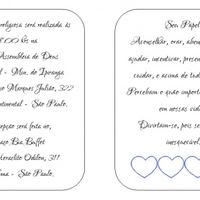 religiosa será realizada às
8:00 hs na
Assembleia de Deus
- Min. do Ipiranga
Marques Julião, 322
Continental - São Paulo.
recepção será feita no,
Buffet
Odilon, 311
- São Paulo.
Seu Papel
Aconselhar, orar, abençoar
ajudar, incentivar, presentear
cuidar, e acima de tudo
Percebam o quão importante
em nossas vidas
Divirtam-se, pois será
inesquecível